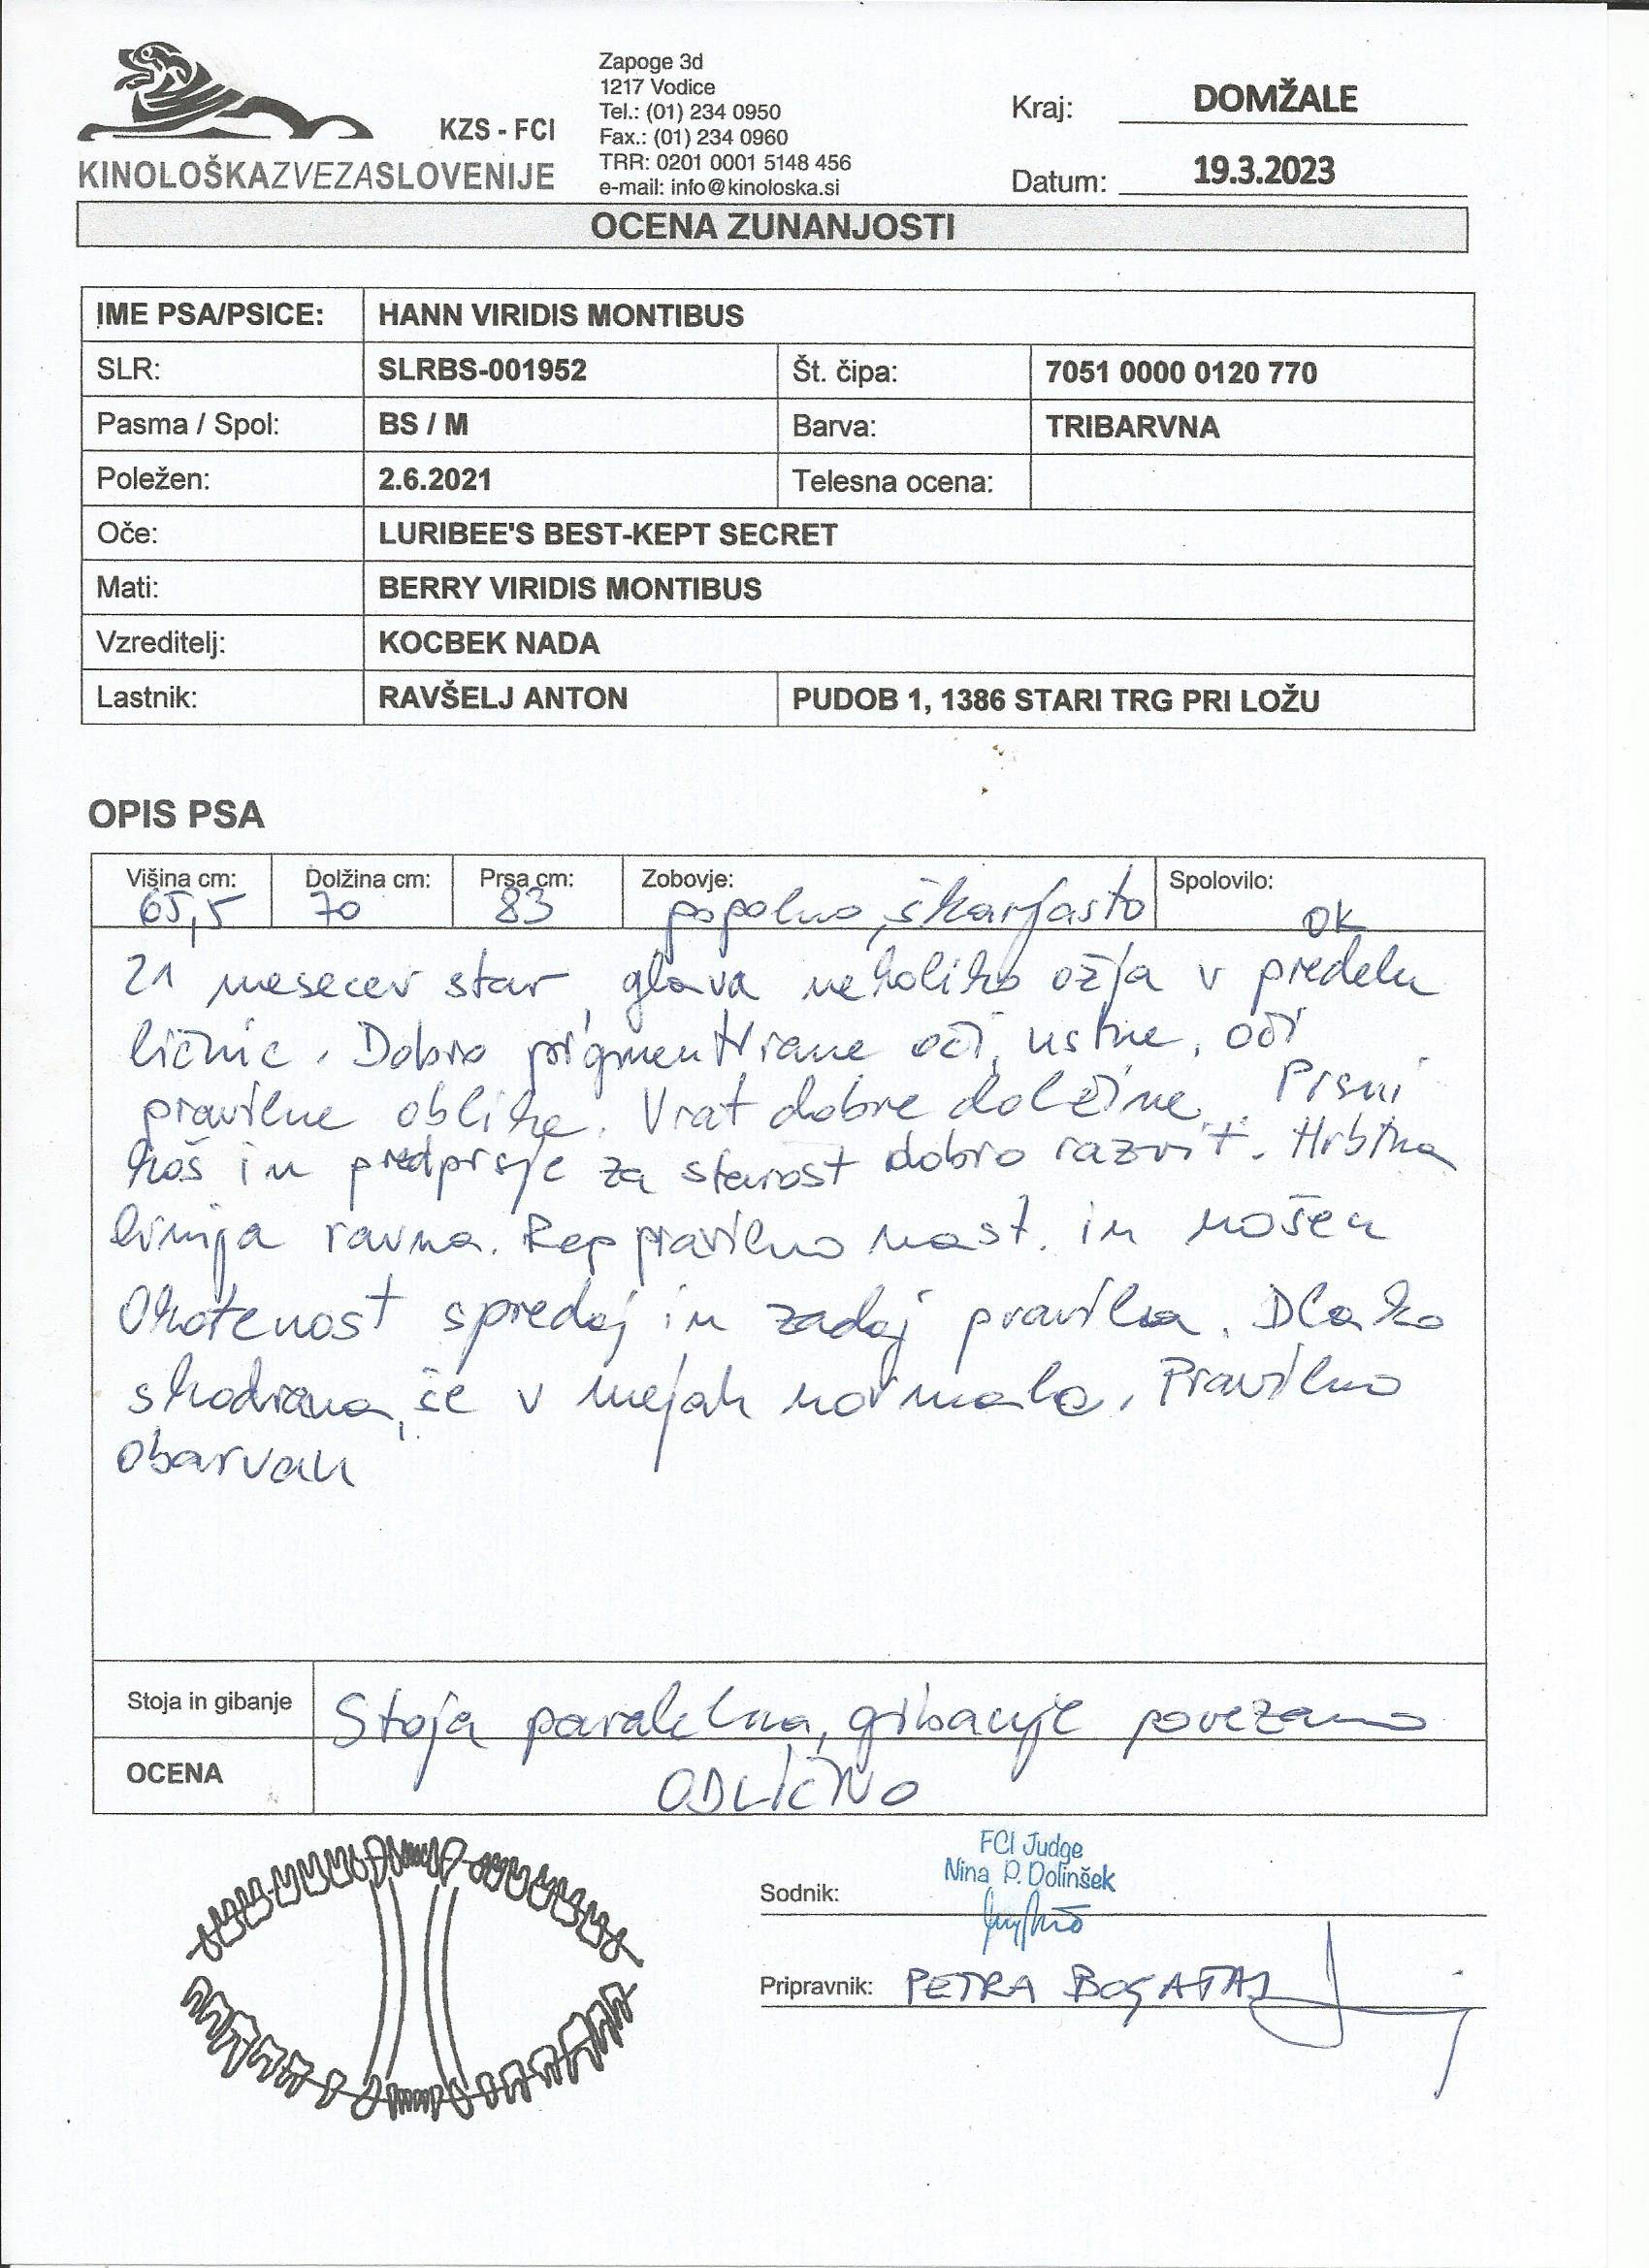 KZS - FCI
KINOLOŠKAZVEZASLOVENIJE
Zapoge 3d
1217 Vodice
Tel.: (01) 234 0950
Fax.: (01) 234 0960
TRR: 0201 0001 5148 456
e-mail: info@kinoloska.si
Kraj: DOMŽALE
Datum: 19.3.2023
OCENA ZUNANJOSTI
IME PSA/PSICE: HANN VIRIDIS MONTIBUS
SLR: SLRBS-001952 Št. čipa: 7051 0000 0120 770
Pasma / Spol: BS / M Barva: TRIBARVNA
Poležen: 2.6.2021 Telesna ocena:
Oče: LURIBEE'S BEST-KEPT SECRET
Mati: BERRY VIRIDIS MONTIBUS
Vzreditelj: KOCBEK NADA
Lastnik: RAVŠELJ ANTON PUDOB 1, 1386 STARI TRG PRI LOŽU
OPIS PSA
Višina cm: Dolžina cm: Prsa cm: Zobovje: Spolovilo:
65,5 70 83 popolno, škarjasto OK
21 mesecev star, glava nekoliko ožja v predelu
ličnic. Dobro pigmentirane oči, ustne, oči
pravilne oblike. Vrat dobre dolžine. Prsni
koš in predprsje za starost dobro razvit. Hrbtna
linija ravna. Rep pravilno nast. in nošen
Okotenost spredaj in zadaj pravilna. Dlaka
skodrana, še v mejah normale. Pravilno
obarvan
Stoja in gibanje Stoja paralelna, gibanje povezano
OCENA ODLIČNO
FCI Judge
Nina P. Dolinšek
Sodnik:
Pripravnik: PETRA BOGATAJ